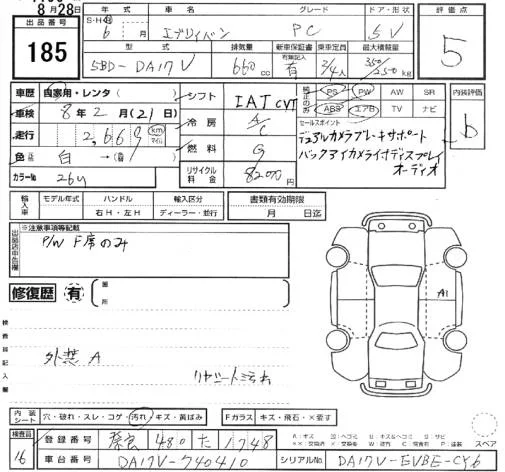 8月28日
出品番号 185
年式 車名 グレード ドア・形状 評価点
S・H・R 6年 月 エブリイバン PC 5V 5
型式 排気量 新車保証書 乗車定員 最大積載量
5BD-DA17V 660cc 有無記入 有 2/4人 350/250kg
車歴 自家用・レンタ
車検 8年2月(21日)
走行 2,669 km マイル
色 白→
カラーNo 26U
シフト IAT CVT
冷房 A/C
燃料 G
リサイクル料金 8200円
PS PW AW SR
ABS エアB TV ナビ
内装評価 b
セールスポイント
デュアルカメラブレーキサポート
バックアイカメラ付ディスプレイ
オーディオ
輸入車 モデル年式 ハンドル 輸入区分 書類有効期限
年 右H・左H ディーラー・並行 月 日迄
※注意事項等記載
出品店申告欄 P/W F席のみ
修復歴 有 箇所
A1
検査員記入欄
外装 A
リヤシート汚れ
内装シート 穴・破れ・スレ・コゲ・汚れ・キズ・黄ばみ
Fガラス キズ・飛石・×要す
スペア
検査員 16
登録番号 奈良 480 た 1748
車台番号 DA17V-740410
シリアルNo DA17V-EVBE-CY6